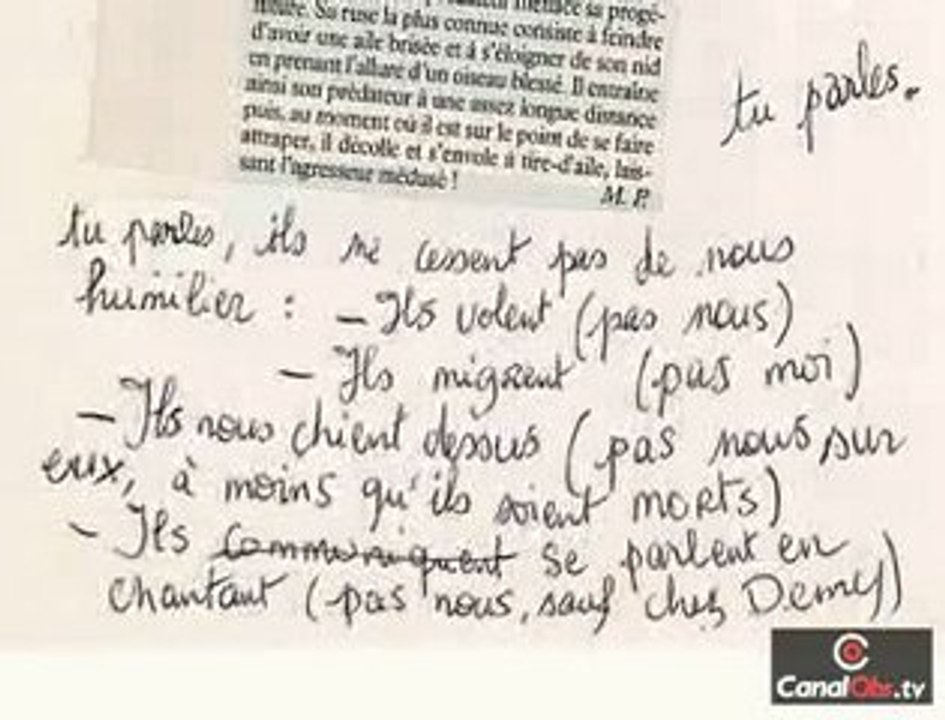 menace sa progé-
niture. Sa ruse la plus connue consiste à feindre
d'avoir une aile brisée et à s'éloigner de son nid
en prenant l'allure d'un oiseau blessé. Il entraîne
ainsi son prédateur à une assez longue distance
puis, au moment où il est sur le point de se faire
attraper, il décolle et s'envole à tire-d'aile, lais-
sant l'agresseur médusé !
M. P.
tu parles.
tu parles, ils ne cessent pas de nous
humilier : – Ils volent (pas nous)
– Ils migrent (pas moi)
– Ils nous chient dessus (pas nous sur
eux, à moins qu'ils soient morts)
– Ils communiquent se parlent en
chantant (pas nous, sauf chez Demy)
CanalObs.tv